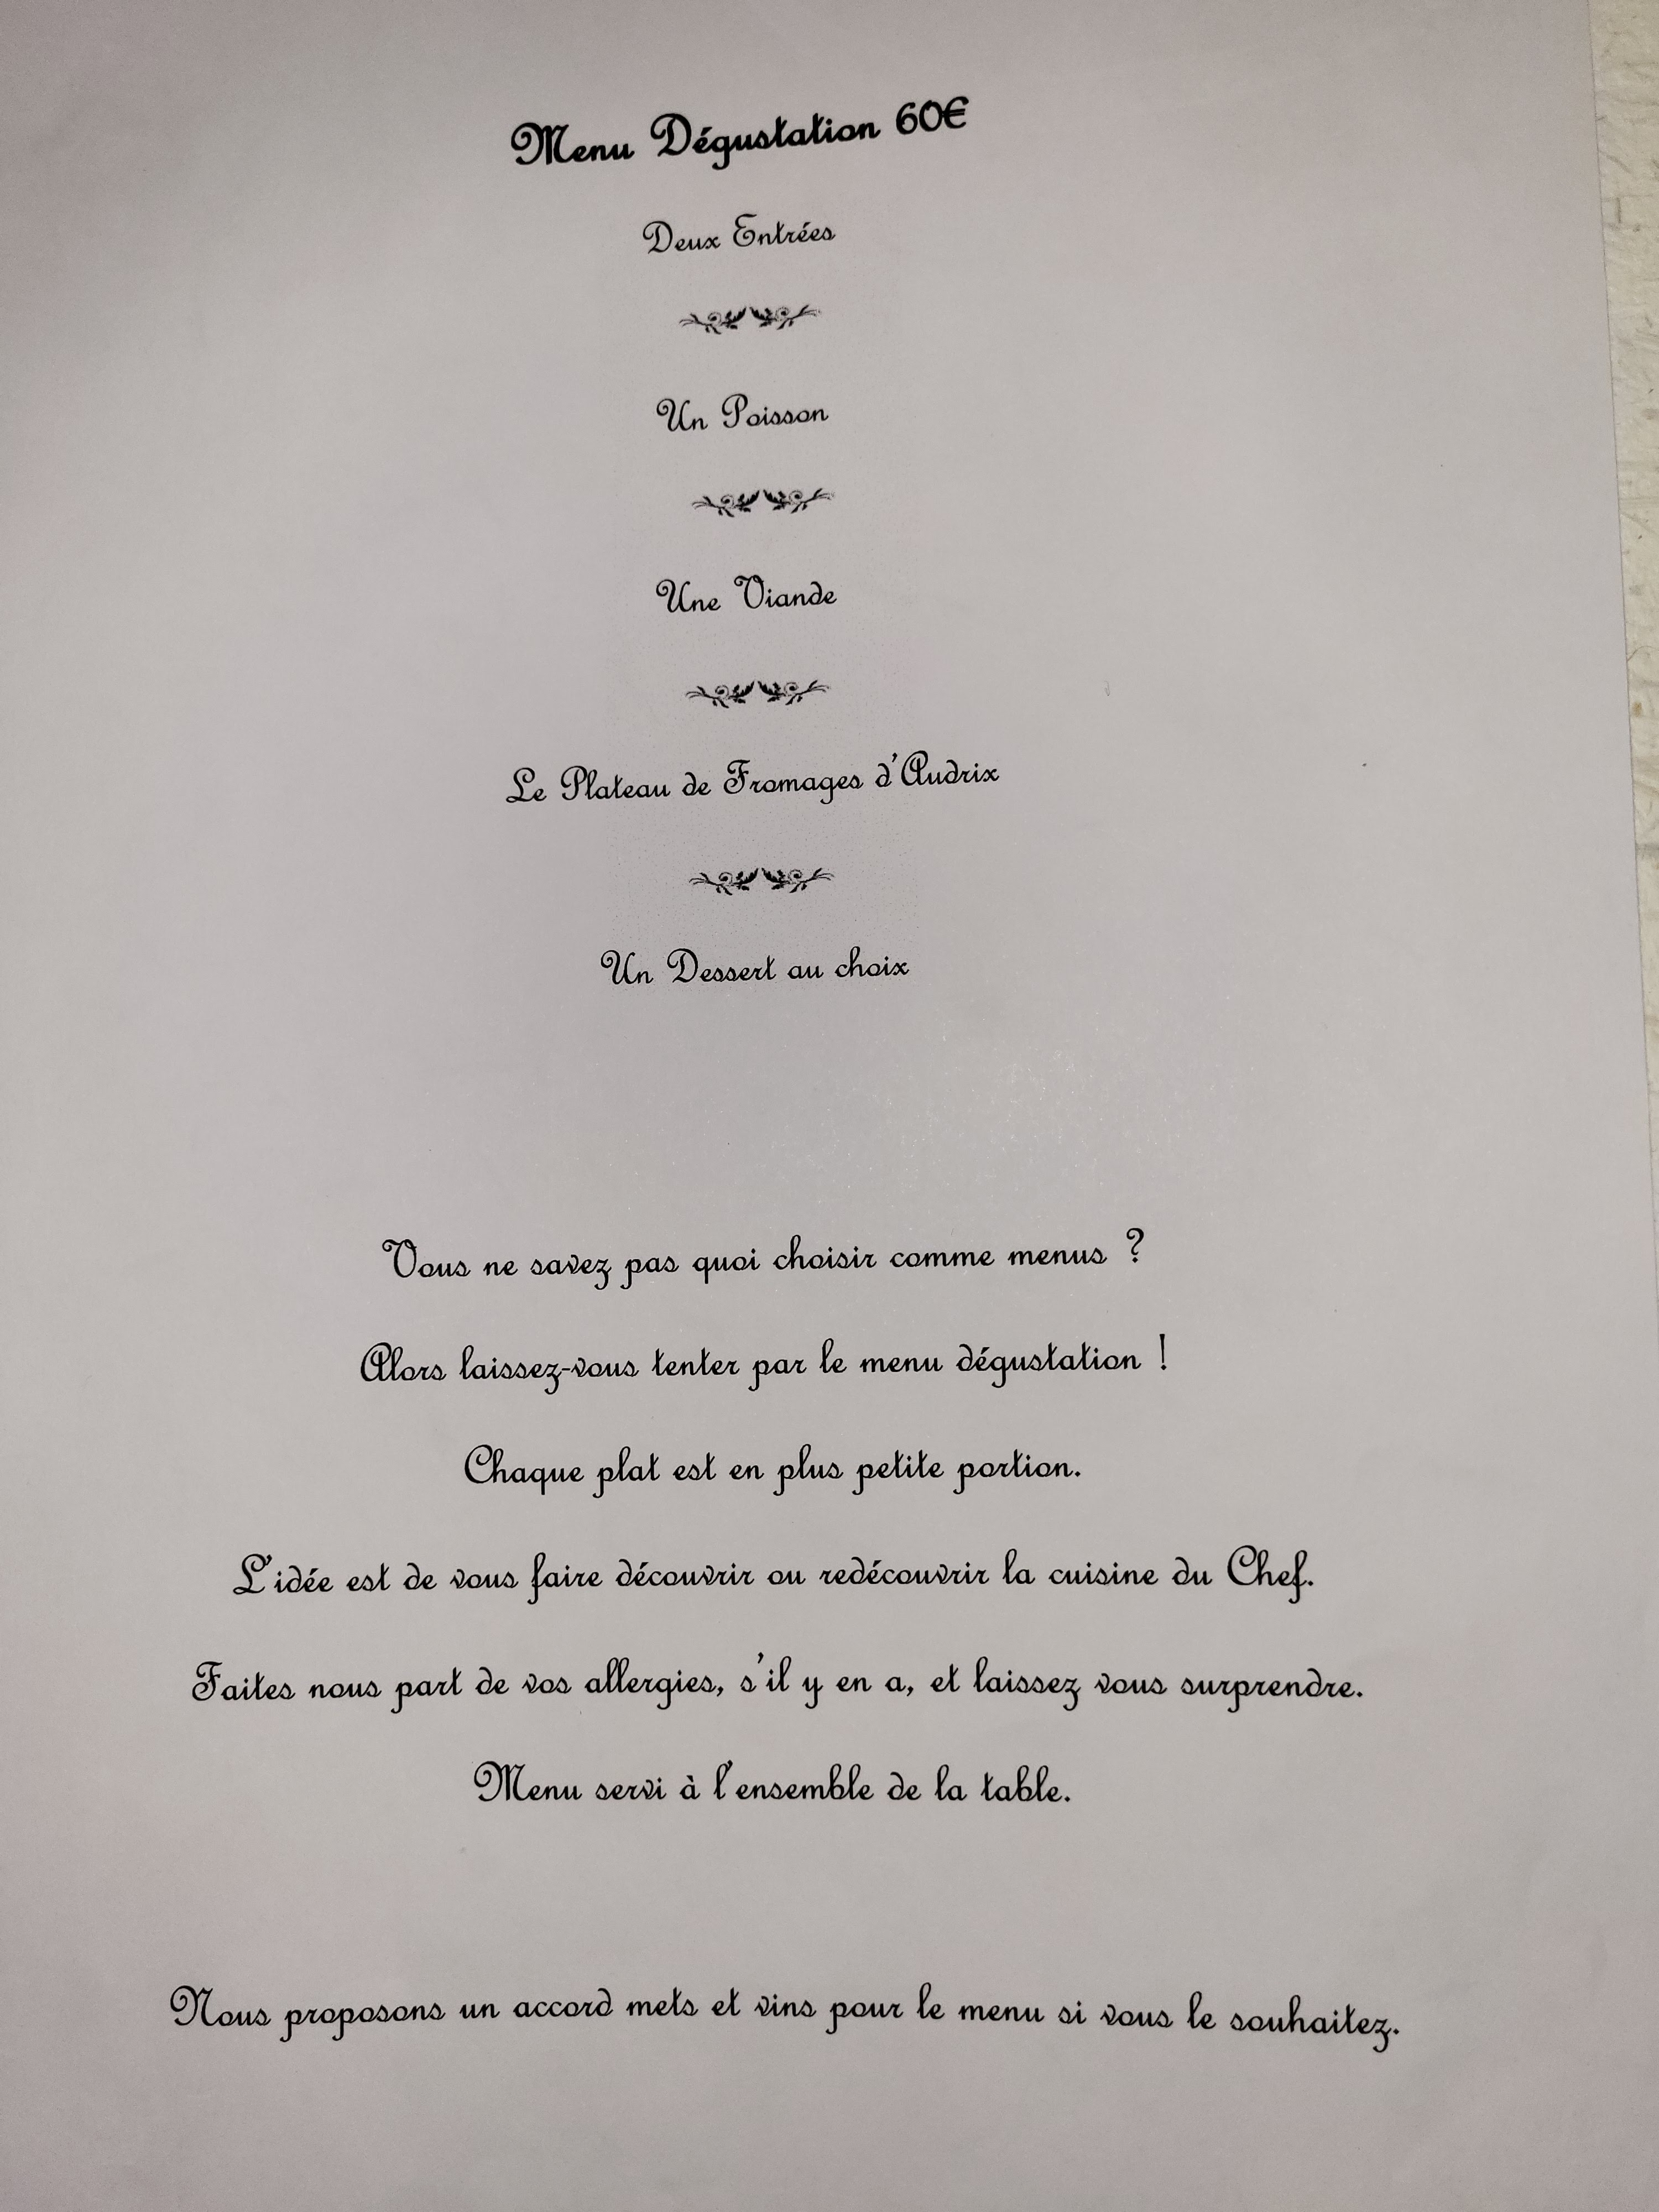 Menu Dégustation 60€
Deux Entrées
Un Poisson
Une Viande
Le Plateau de Fromages d'Audrix
Un Dessert au choix
Vous ne savez pas quoi choisir comme menus ?
Alors laissez-vous tenter par le menu dégustation !
Chaque plat est en plus petite portion.
L'idée est de vous faire découvrir ou redécouvrir la cuisine du Chef.
Faites nous part de vos allergies, s'il y en a, et laissez vous surprendre.
Menu servi à l'ensemble de la table.
Nous proposons un accord mets et vins pour le menu si vous le souhaitez.